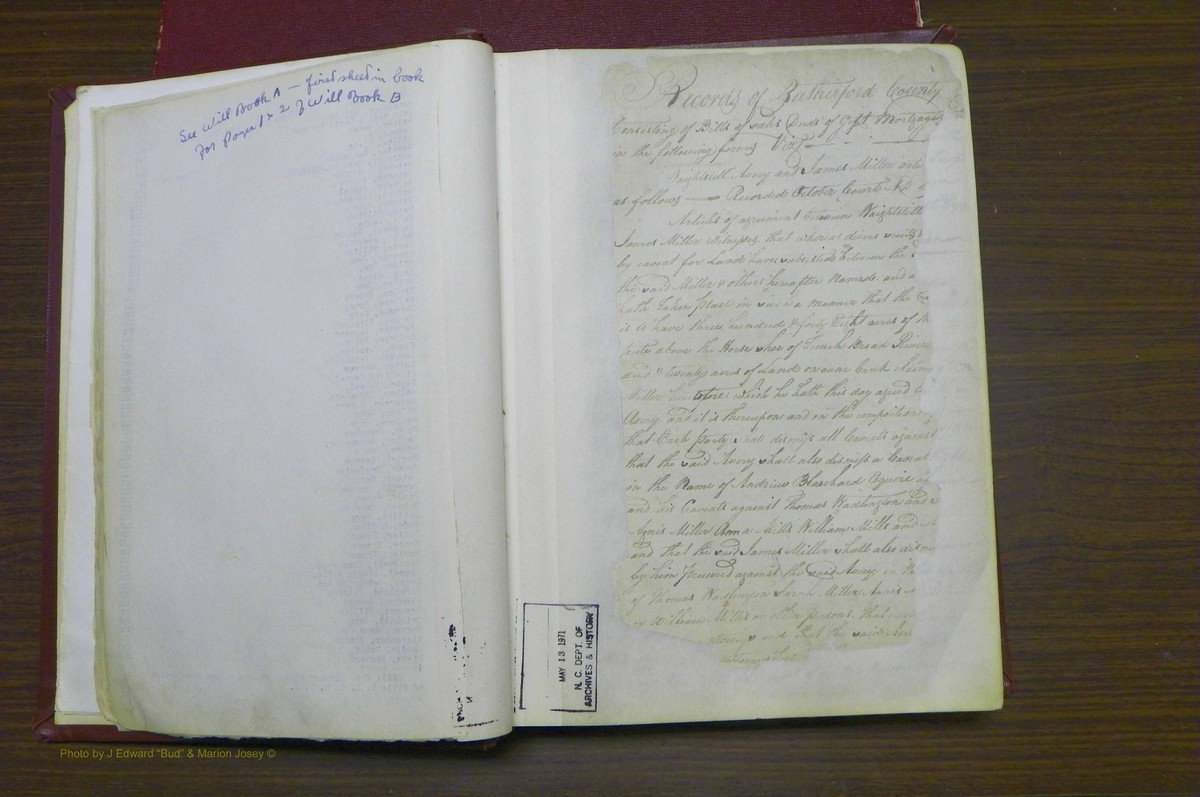 See Will Book A — first sheet in book
For pages 1 & 2 of Will Book B
Records of Rutherford County
Consisting of Bills of sales Deeds of Gift Mortgages
in the following forms Viz
Waightstill Avery and James Miller arti
as follows — Recorded October Court AD
Articles of agreement between Waightstill
James Miller witnesses that whereas divers suits
by caveat for Land have subsisted between the
the said Miller & others hereafter Named and a
hath taken place in such a manner that the
is to have three hundred & forty Eight acres of
above the Horse shoe of French Broad River
twenty acres of Land on cane Creek
Miller heretofore which he hath this day agreed to
Avery and it is thereupon and on this composition
that Each Party shall dismiss all Caveats against
that the said Avery shall also dismiss a Caveat
in the Name of Andrew Blanchard Esquire
and his Caveats against Thomas Wadlington and
Agnis Miller Anna Mills William Mills and
and that the said James Miller shall also
by him against the said Avery in the
of Thomas Wadlington Sarah Miller Agnis
William Mills or other persons that
Avery & and that the said
MAY 13 1971
N. C. DEPT. OF
ARCHIVES & HISTORY
Photo by J Edward "Bud" & Marion Josey ©